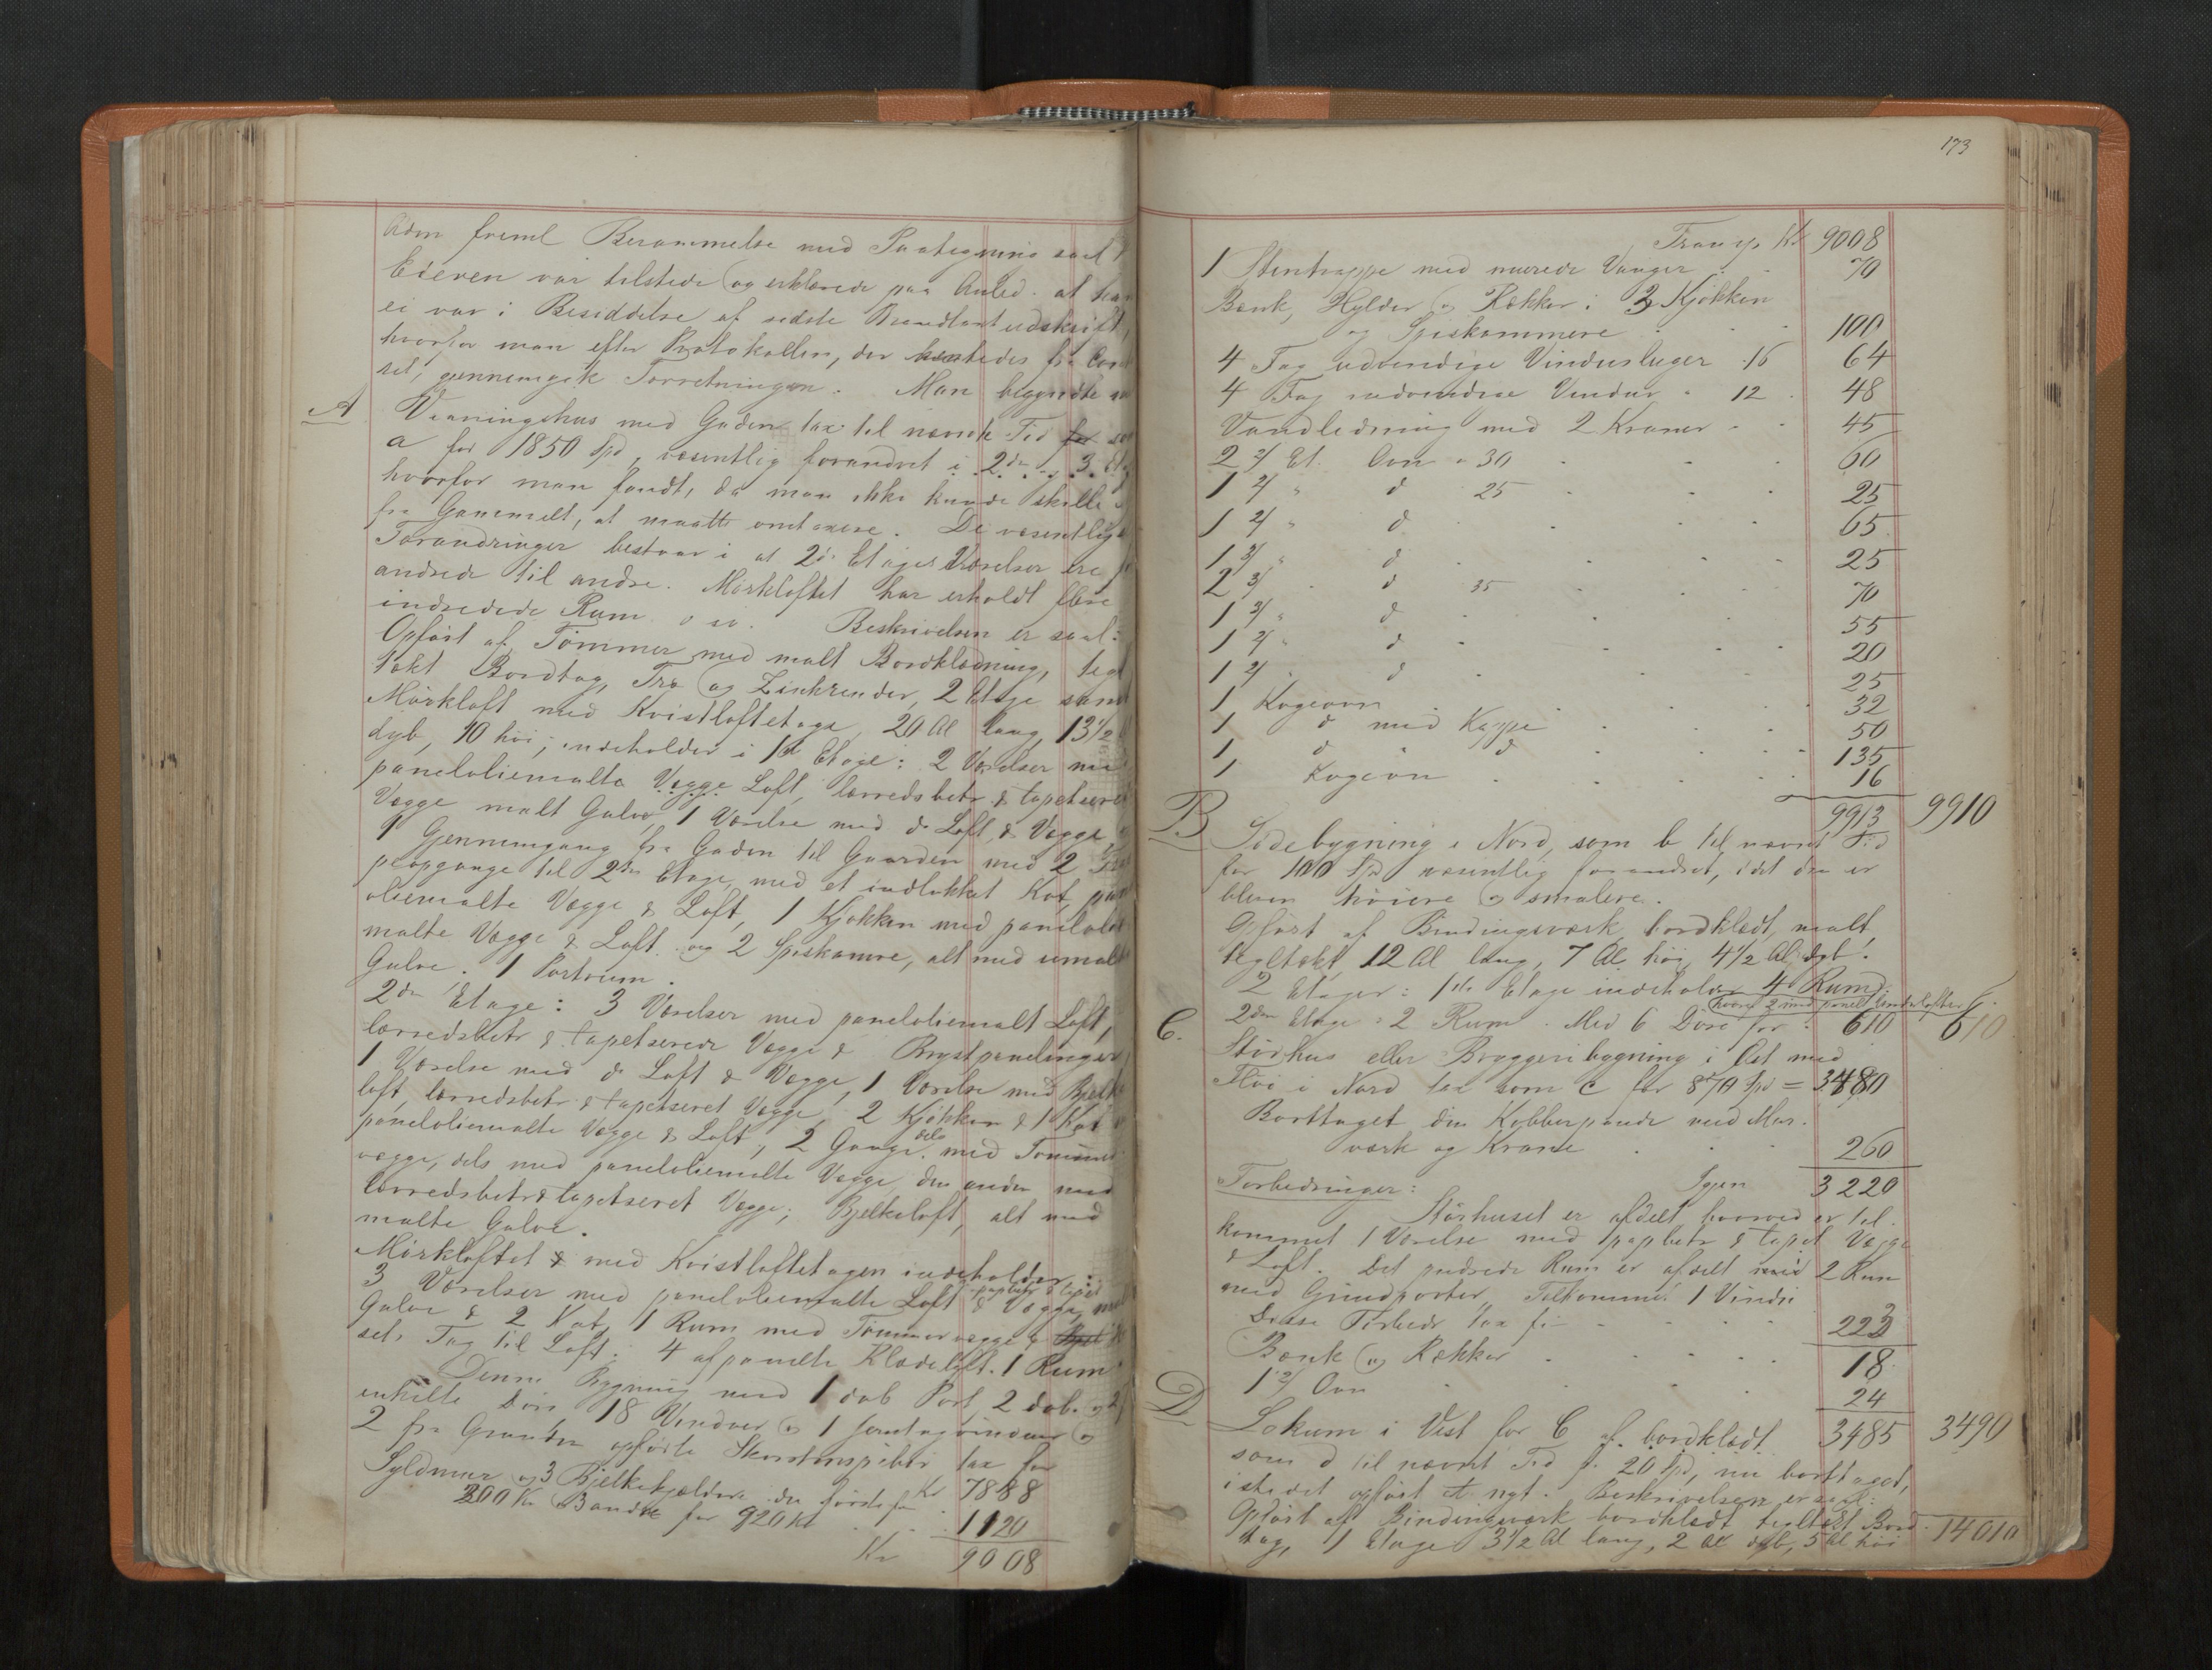 fremL Berammelse med Paategning
Eieren var tilstede og erklærede paa Anled. at han
ei var i Besiddelse af sidste Branttaxtudskrift,
hvorfor man efter Protokollen, der hentedes fra
set, gjennemgik Forretningen. Man begyndte
A
Vaaningshus mod Gaden tax til nævnte Tid
a for 1850 Spd, væsentlig forandret i 2den og 3.
hvorfor man fandt, da man ikke kunde skille
fra Gammelt, at maatte omtaxere. De væsentlige
Forandringer bestaar i at 2d Etages Værelser ere
andrede til andre. Mørkloftet har erholdt flere
indredede Rum o sv. Beskrivelsen er saal:
Opført af Tømmer med malt Bordklædning, tegl
tækt Bordtag, Træ og Zinkrender, 2 Etage samt
Mørkloft med Kvistloftetage, 20 Al lang, 13 1/2
dyb, 10 høi; indeholder i 1ste Etage: 2 Værelser med
paneloliemalte Vægge Loft, lærredsbetr & tapetserede
Vægge malt Gulve, 1 Værelse med do Loft & Vægge
1 Gjennemgang fra Gaden til Gaarden med 2
peopgange til 2den Etage, med et indlukket Kot,
oliemalte Vægge & Loft, 1 Kjøkken med panelolie
malte Vægge & Loft og 2 Spiskamre, alt med umalte
Gulve. 1 Portrum.
2den Etage: 3 Værelser med paneloliemalt Loft,
lærredsbetr & tapetserede Vægge & Brystpanelinger
1 Værelse med do Loft & Vægge, 1 Værelse med Bjelke
loft, lærredsbetr & tapetseret Vægge, 2 Kjøkken & 1 Kot
paneloliemalte Vægge & Loft, 2 Gange dels med Tømmer
vægge, dels med paneloliemalte Vægge, den anden med
lærredsbetr & tapetseret Vægge; Bjelkeloft, alt med
malte Gulve.
Mørkloftet & med Kvistloftetagen indeholder:
3 Værelser med paneloliemalte Loft & papbetr & tapet Vægge, malt
Gulve & 2 Kot, 1 Rum med Tømmervægge &
sel. Tag til Loft. 4 afpanelte Klædeloft. 1 Rum
Denne Bygning med 1 dob Port, 2 dob. og
enkelte Døre 18 Vinduer og 1 Jerntagvindue og
2 fra Grunden opførte Skorstenspiber tax for Kr 7888
Syldmur og 3 Bjelkekjældere den første for
200 Kr B andre for 920 Kr 1120
Kr 9008

173
Transp Kr 9008
1 Stentrappe med murede Vanger 70
Bænk, Hylder og Rækker i 3 Kjøkken
og Spiskammere 100
4 Fag udvendige Vindusluger 16 64
4 Fag indvendige Vinduer 12 48
Vandledning med 2 Kraner 45
2 2/ Et. Ovn a 30 60
1 2/ " d 25 25
1 2/ " d 65
1 3/ " d 25
2 3/ d 35 70
1 3/ " d 55
1 2/ " d 20
1 2/ d 25
1 Kogeovn 32
1 d med Kappe 50
1 d d 135
1 Kogeovn 16
9913 9910
B
Sidebygning i Nord, som b til nævnt Tid
for 100 Spd væsentlig forandret, idet den er
bleven høiere og smalere.
Opført af Bindingsværk bordklædt, malt
tegltækt 12 Al lang, 7 Al høi, 4 1/2 Al dyb.
2 Etager: 1ste Etage indeholder 4 Rum,
2den Etage: 2 Rum. Med 6 Døre for 610 610
C.
Størhus eller Bryggeribygning i Øst med
Fløi i Nord tax som c for 870 Spd = 3480
Borttaget den Kobberpande med Mur-
værk og Krane 260
Igjen 3220
Forbedringer:
Størhuset er afdelt hvorved er til-
kommet 1 Værelse med papbetr & tapet Vægge
& Loft. Det Rum er afdelt med 2 Rum
med Grindporter, Tilkommet 1 Vindu
Disse Forbedr tax for 223
Bænk og Rækker 18
1 2/ Ovn 24
D
3485 3490
Lokum i Vest for C af bordklædt
som d til nævnt Tid for 20 Spd, nu borttaget,
istedet opført et nyt. Beskrivelsen er saal:
Opført af Bindingsværk bordklædt tegltækt Bord-
tag, 1 Etage 3 1/2 Al lang, 2 Al dyb, 5 Al høi 14010